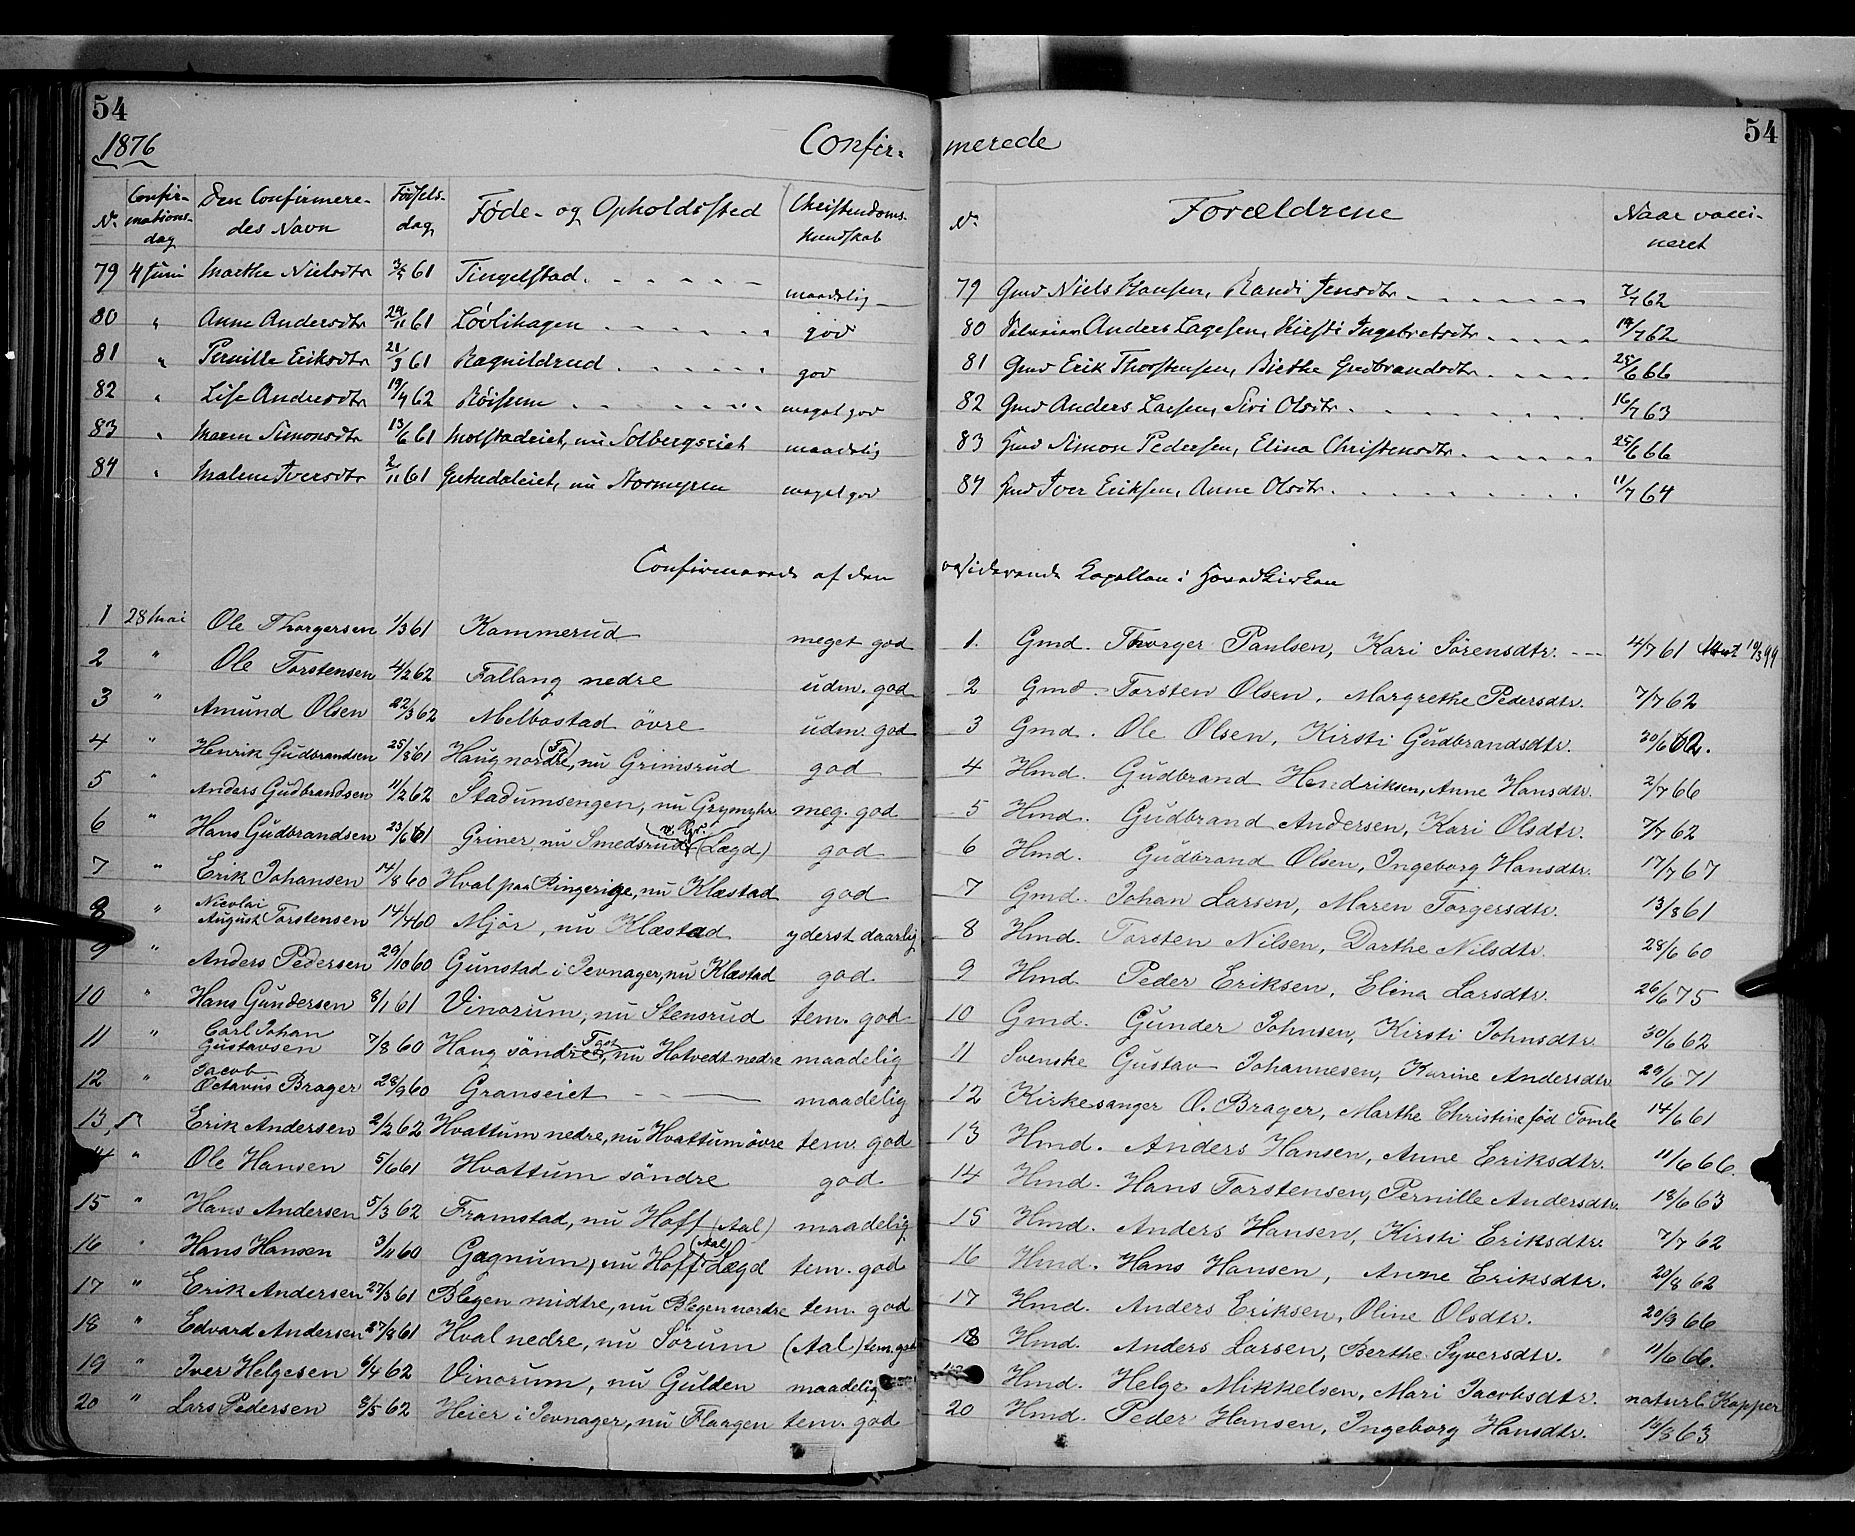 54
1876
Confir- merede
54
N. Confirmations-dag Den Confirmeredes Navn Fødselsdag Føde- og Opholdssted Christendomskundskab N. Forældrene Naar vaccineret
79 4 Juni Marthe Nielsdtr 61 Tingelstad maadelig 79 Gmd Niels Hansen, Randi Jensdtr 62
80 " Anne Andersdtr 29/11 61 Løvlihagen god 80 Anders Lagesen, Kirsti Ingebretsdtr 19/7 62
81 " Pernille Eriksdtr 21/3 61 Ragnildrud god 81 Gmd Erik Thorstensen, Birthe Gudbrandsdtr 25/6 66
82 " Lise Andersdtr 19/4 62 Røissum meget god 82 Gmd Anders Larsen, Siri Olsdtr 16/7 63
83 " Maren Simonsdtr 13/6 61 Molstadeiet, nu Solbergseiet maadelig 83 Hmd Simon Pedersen, Elina Christensdtr 25/6 66
84 " Malene Iversdtr 2/11 61 nu Stormyren meget god 84 Hmd Iver Eriksen, Anne Olsdtr. 11/7 64
Confirmerede af den residerende Capellan i Hovedkirken
1 28 Mai Ole Thorgersen 1/3 61 Kammerud meget god 1. Gmd. Thorger Paulsen, Kari Sørensdtr. 4/7 61
2 " Ole Torstensen 4/2 62 Fallang nedre udm. god 2 Gmd. Torsten Olsen, Margrethe Pedersdtr. 7/7 62
3 " Amund Olsen 22/3 62 Melbostad övre udm. god 3 Gmd. Ole Olsen, Kirsti Gudbrandsdtr. 30/6 62.
4 " Henrik Gudbrandsen 25/3 61 Haug nordre, nu Grimsrud god 4 Hmd. Gudbrand Hendriksen, Anne Hansdtr. 2/7 66
5 " Anders Gudbrandsen 11/2 62 Stadumsengen, nu Grymyhr meg. god 5 Hmd. Gudbrand Andersen, Kari Olsdtr. 7/7 62
6 " Hans Gudbrandsen 23/6 61 Griner, nu Smedsrud (Lægd) god 6 Hmd. Gudbrand Olsen, Ingeborg Hansdtr. 17/7 67
7 " Erik Johansen 14/8 60 Hval paa Ringerige, nu Klæstad god 7 Gmd. Johan Larsen, Maren Torgersdtr. 13/8 61
8 " Nicolai August Torstensen 14/4 60 Mjør, nu Klæstad yderst daarlig 8 Hmd. Torsten Nilsen, Dorthe Nilsdtr. 28/6 60
9 " Anders Pedersen 29/10 60 Gunstad i Jevnager, nu Klæstad god 9 Hmd. Peder Eriksen, Elina Larsdtr. 26/6 75
10 " Hans Gundersen 8/1 61 Vinorum, nu Stensrud tem. god 10 Gmd. Gunder Johnsen, Kirsti Johnsdtr 30/6 62
11 " Carl Johan Gustavsen 7/8 60 Haug söndre, nu Hotvedt nedre maadelig 11 Svenske Gustav Johannesen, Karine Andersdtr 29/6 71
12 " Jacob Octavius Brager 28/9 60 Granseiet maadelig 12 Kirkesanger O. Brager, Marthe Christine fød Tomle 14/6 61
13 Erik Andersen 2/2 62 Hvattum nedre, nu Hvattum övre tem. god 13 Hmd. Anders Hansen, Anne Eriksdtr. 11/6 66.
14 " Ole Hansen 5/6 61 Hvattum söndre god 14 Hmd. Hans Torstensen, Pernille Andersdtr. 18/6 63
15 " Hans Andersen 5/3 62 Framstad, nu Hoff (Aal) maadelig 15 Hmd. Anders Hansen, Kirsti Eriksdtr. 7/7 62
16 " Hans Hansen 3/11 60 Gagnum, nu Hoff (Aal) Lægd tem. god 16 Hmd. Hans Hansen, Anne Eriksdtr. 20/8 62
17 " Erik Andersen 27/3 61 Blegen midtre, nu Blegen nordre tem. god 17 Hmd. Anders Eriksen, Oline Olsdtr. 20/9 66
18 " Edvard Andersen 27/8 61 Hval nedre, nu Sörum (Aal) tem. god 18 Hmd. Anders Larsen, Berthe Syversdtr. 11/6 66.
19 " Iver Helgesen 6/4 62 Vinorum, nu Gulden maadelig Hmd. Helge Mikkelsen, Mari Jacobsdtr. naturl. Kopper
20 " Lars Pedersen 8/5 62 Heier i Jevnager, nu Flaagen tem. god 20 Hmd. Peder Hansen, Ingeborg Hansdtr. 14/8 63